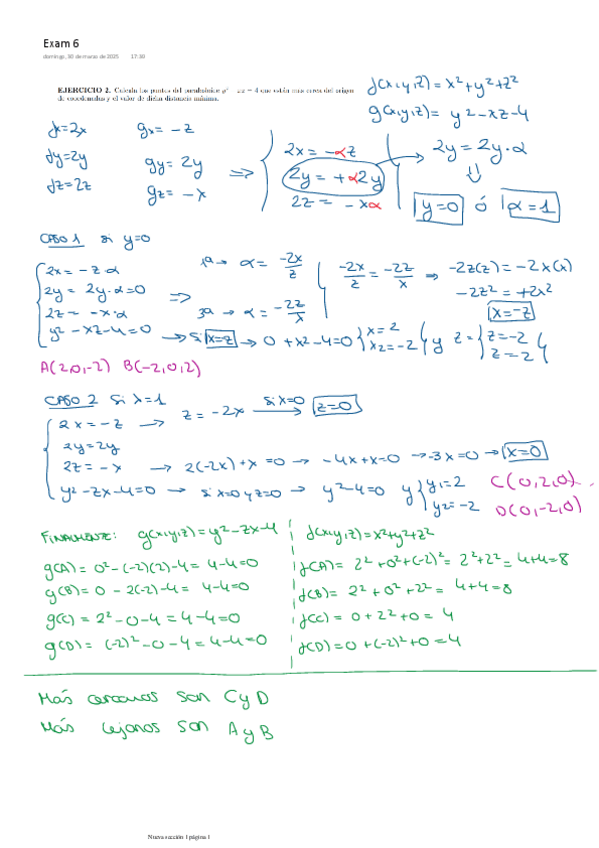 Exam 6
domingo, 30 de marzo de 2025 17:30
EJERCICIO 2. Calcula los puntos del paraboloide y² − xz = 4 que están más cerca del origen
de coordenadas y el valor de dicha distancia mínima.
f(x,y,z) = x²+y²+z²
g(x,y,z) = y²-xz-4
fx=2x gx= -z
fy=2y gy= 2y
fz=2z gz= -x
=> 2x = -αz
2y = +α2y
2z = -xα
2y = 2y·α
y=0 ó α=1
CASO 1 si y=0
2x = -z α
2y = 2y·α=0
2z = -x·α
y² - xz-4=0
=>
1ª → α = -2x/z
3ª → α = -2z/x
-2x/z = -2z/x => -2z(z) = -2x(x)
-2z² = +2x²
x=-z
→ si x=z → 0 + x²-4=0 x=2 x2=-2 y z= z=-2 z=2
A(2,0,-2) B(-2,0,2)
CASO 2 Si λ=1
2x = -z → z = -2x si x=0 → z=0
2y=2y
2z = -x → 2(-2x)+x=0 → -4x+x=0 → -3x=0 → x=0
y²-zx-4=0 → si x=0 y z=0 → y²-4=0 y y1=2 y2=-2
C(0,2,0)
D(0,-2,0)
FINALMENTE: g(x,y,z)=y²-zx-4
g(A)= 0²-(-2)(2)-4= 4-4=0
g(B)= 0 - 2(-2)-4= 4-4=0
g(C) = 2²-0-4 = 4-4=0
g(D)= (-2)²-0-4= 4-4=0
f(x,y,z)=x²+y²+z²
f(A)= 2²+0²+(-2)²= 2²+2²= 4+4=8
f(B)= 2²+0²+2²= 4+4=8
f(C) = 0+2²+0 = 4
f(D)=0+(-2)²+0=4
Más cercanos son C y D
Más lejanos son A y B
Nueva sección 1 página 1